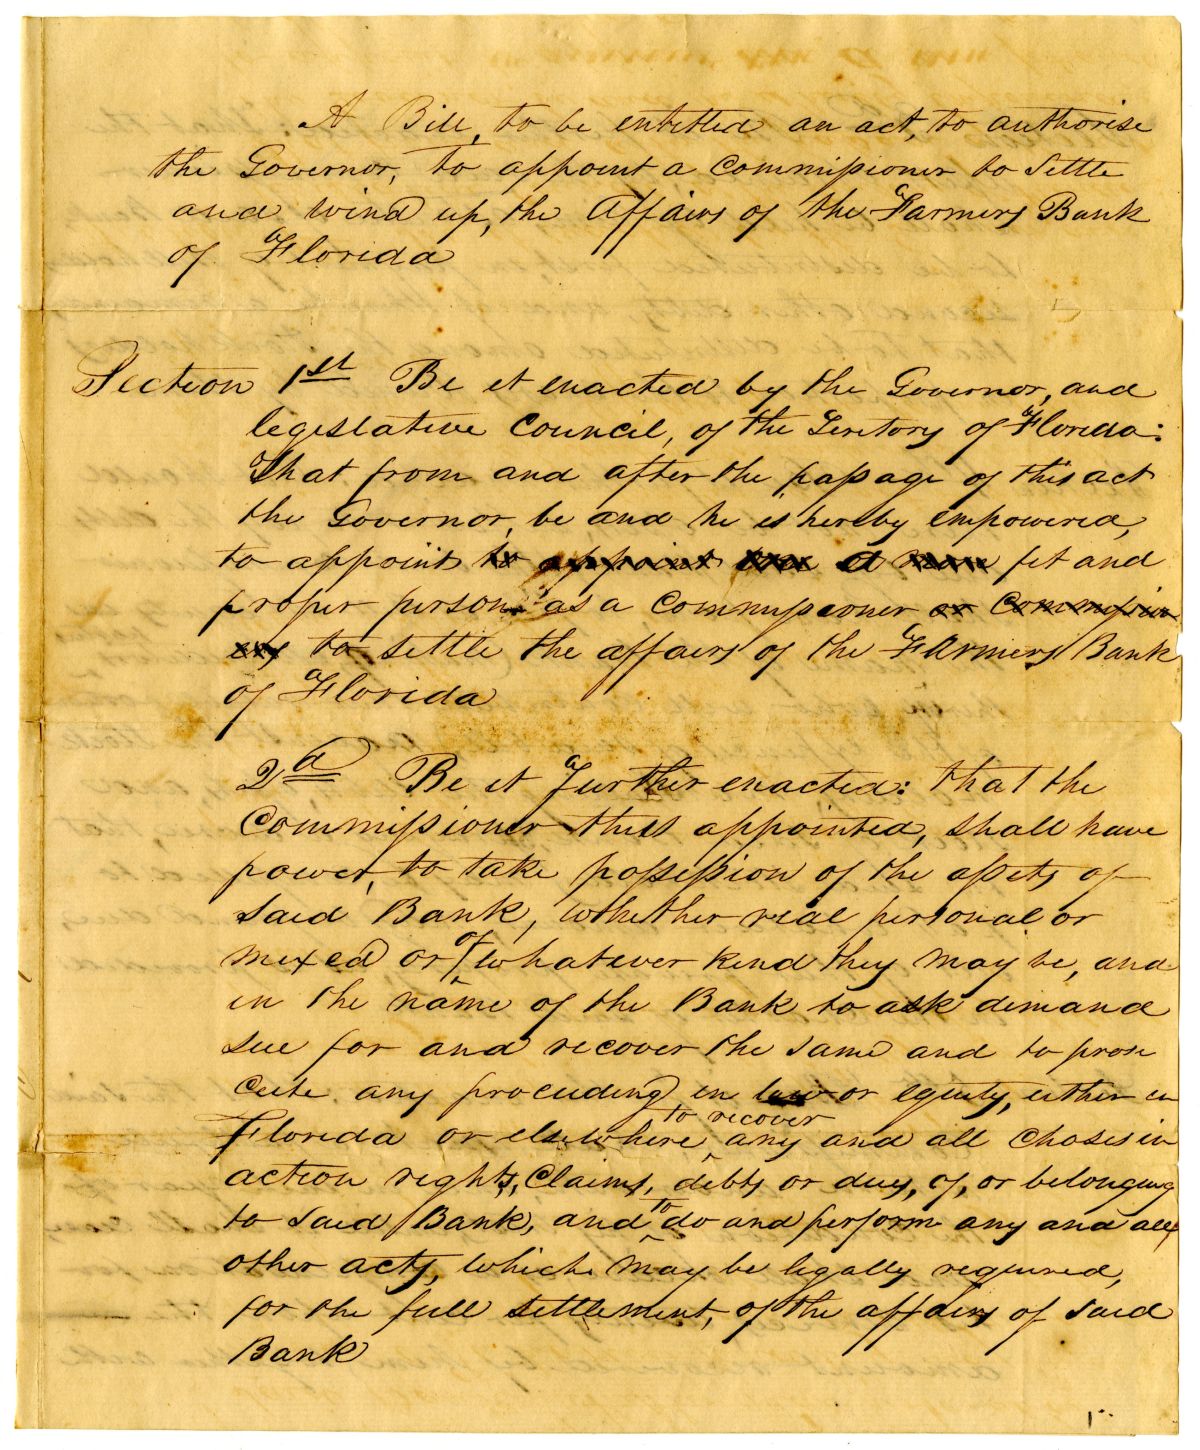 A Bill, to be entitled an act, to authorise
the Governor, to appoint a Commissioner to Settle
and wind up, the Affairs of the Farmers Bank
of Florida
Section 1st Be it enacted by the Governor, and
legislative Council, of the Teritory of Florida:
That from and after the passage of this act
the Governor, be and he is hereby empowered,
to appoint to appoint one a fit and
proper person as a Commissioner or Commission
ers to settle the affairs of the Farmers Bank
of Florida
2d Be it Further enacted: that the
Commissioner thus appointed, shall have
power, to take possession of the assets of
said Bank, whether real personal or
mixed or of whatever kind they may be, and
in the name of the Bank to ask demand
sue for and recover the same and to prose
cute any proceeding in law or equity, either in
Florida or elsewhere, to recover any and all choses in
action rights, Claims, debts or dues, of, or belonging
to said Bank, and to do and perform any and all
other acts, which may be legally required,
for the full settlement, of the affairs of said
Bank
1